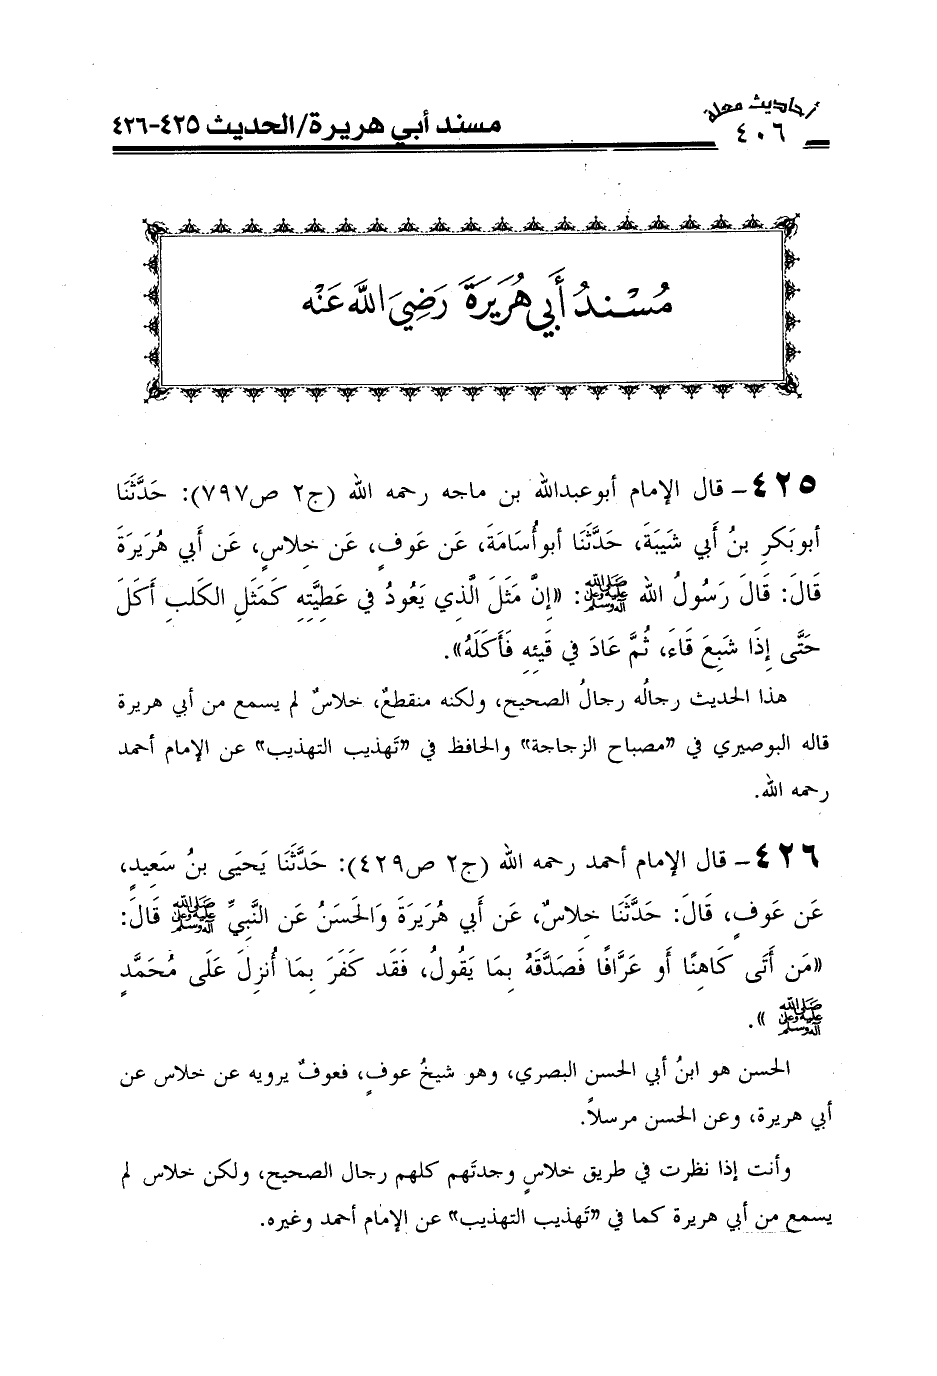 أحاديث معلة
٤٠٦
مسند أبي هريرة/الحديث ٤٢٥-٤٢٦
مُسْنَدُ أَبِي هُرَيرَةَ رَضِيَ اللَّه عَنْه
٤٢٥- قال الإمام أبوعبدالله بن ماجه رحمه الله (ج٢ ص٧٩٧): حَدَّثَنَا
أبوبَكرِ بنُ أَبِي شَيبَةَ، حَدَّثَنَا أبوأُسَامَةَ، عَن عَوفٍ، عَن خلاسٍ، عَن أَبِي هُرَيرَةَ
قَالَ: قَالَ رَسُولُ الله ﷺ: «إِنَّ مَثَلَ الَّذِي يَعُودُ فِي عَطِيَّتِهِ كَمَثَلِ الكَلبِ أَكَلَ
حَتَّى إِذَا شَبِعَ قَاءَ، ثُمَّ عَادَ فِي قَيئِهِ فَأَكَلَهُ».
هذا الحديث رجالُه رجالُ الصحيح، ولكنه منقطعٌ، خلاسٌ لم يسمع من أبي هريرة
قاله البوصيري في «مصباح الزجاجة» والحافظ في «تَهذيب التهذيب» عن الإمام أحمد
رحمه الله.
٤٢٦- قال الإمام أحمد رحمه الله (ج٢ ص٤٢٩): حَدَّثَنَا يَحيَى بنُ سَعِيدٍ،
عَن عَوفٍ، قَالَ: حَدَّثَنَا خلاسٌ، عَن أَبِي هُرَيرَةَ وَالحَسَنُ عَن النَّبِيِّ ﷺ قَالَ:
«مَن أَتَى كَاهِنًا أَو عَرَّافًا فَصَدَّقَهُ بِمَا يَقُولُ، فَقَد كَفَرَ بِمَا أُنزِلَ عَلَى مُحَمَّدٍ
ﷺ».
الحسن هو ابنُ أبي الحسن البصري، وهو شيخُ عوفٍ، فعوفٌ يرويه عن خلاس عن
أبي هريرة، وعن الحسن مرسلاً.
وأنت إذا نظرت في طريق خلاسٍ وجدتَهم كلهم رجال الصحيح، ولكن خلاس لم
يسمع من أبي هريرة كما في «تَهذيب التهذيب» عن الإمام أحمد وغيره.